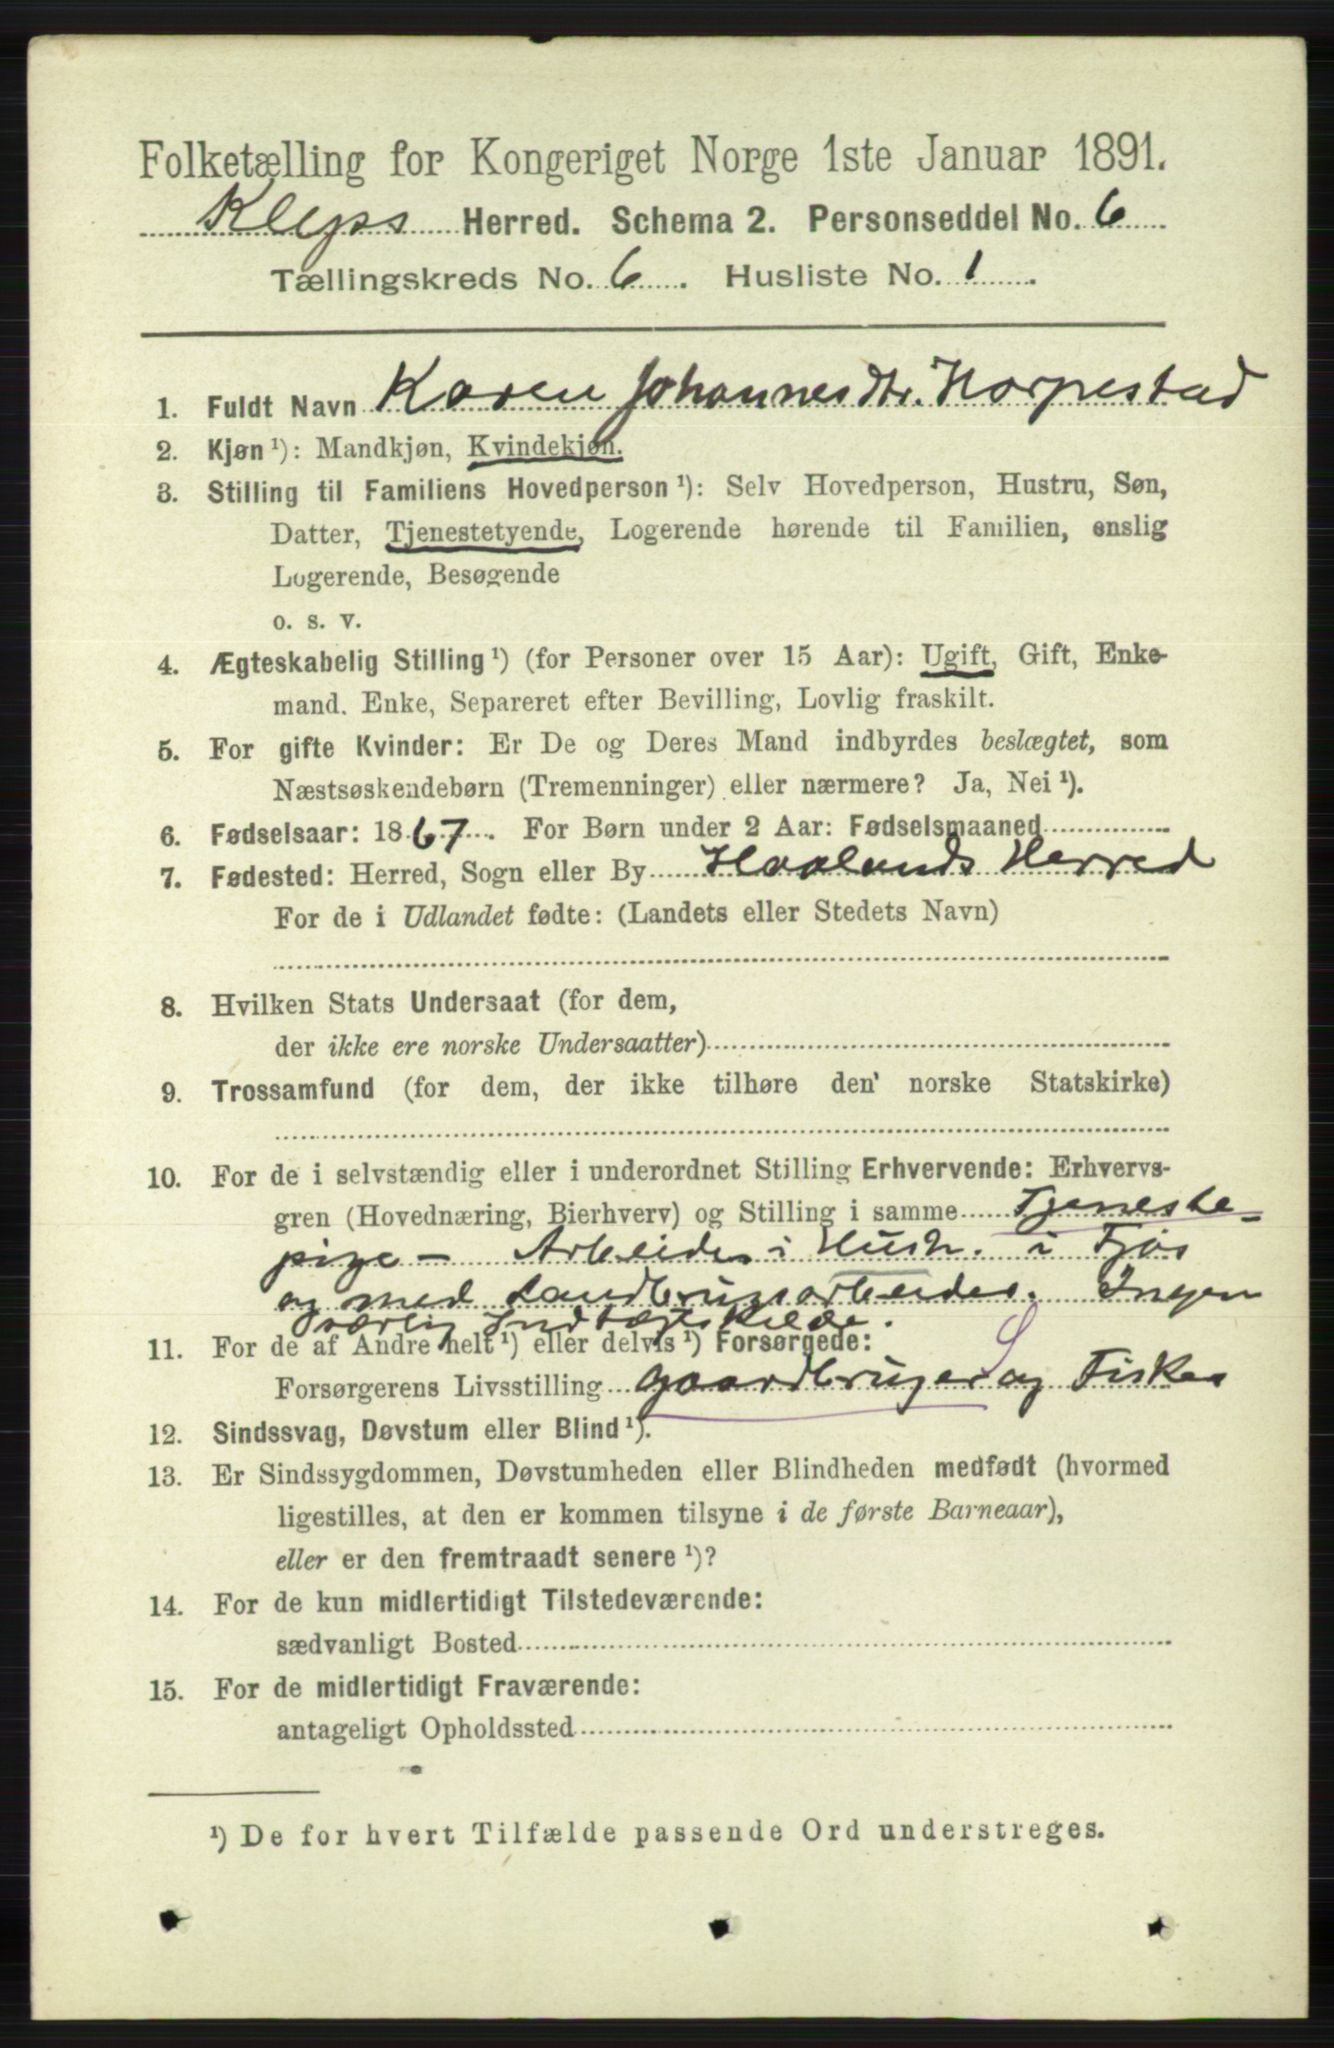 Folketælling for Kongeriget Norge 1ste Januar 1891.
Kleps Herred. Schema 2. Personseddel No. 6
Tællingskreds No. 6. Husliste No. 1.
1. Fuldt Navn Karen Johannesdtr. Horpestad
2. Kjøn ¹): Mandkjøn, Kvindekjøn.
3. Stilling til Familiens Hovedperson ¹): Selv Hovedperson, Hustru, Søn,
Datter, Tjenestetyende, Logerende hørende til Familien, enslig
Logerende, Besøgende
o. s. v.
4. Ægteskabelig Stilling ¹) (for Personer over 15 Aar): Ugift, Gift, Enke-
mand. Enke, Separeret efter Bevilling, Lovlig fraskilt.
5. For gifte Kvinder: Er De og Deres Mand indbyrdes beslægtet, som
Næstsøskendebørn (Tremenninger) eller nærmere? Ja, Nei ¹).
6. Fødselsaar: 1867. For Børn under 2 Aar: Fødselsmaaned
7. Fødested: Herred, Sogn eller By Haalands Herred
For de i Udlandet fødte: (Landets eller Stedets Navn)
8. Hvilken Stats Undersaat (for dem,
der ikke ere norske Undersaatter)
9. Trossamfund (for dem, der ikke tilhøre den norske Statskirke)
10. For de i selvstændig eller i underordnet Stilling Erhvervende: Erhvervs-
gren (Hovednæring, Bierhverv) og Stilling i samme Tjeneste-
pige - Arbeider i Hush. i Fjøs
og med Landbrugsarbeider. Ingen
særlig Indtægtskilde.
11. For de af Andre helt ¹) eller delvis ¹) Forsørgede:
Forsørgerens Livsstilling Gaardbruger og Fisker
12. Sindssvag, Døvstum eller Blind ¹).
13. Er Sindssygdommen, Døvstumheden eller Blindheden medfødt (hvormed
ligestilles, at den er kommen tilsyne i de første Barneaar),
eller er den fremtraadt senere ¹)?
14. For de kun midlertidigt Tilstedeværende:
sædvanligt Bosted
15. For de midlertidigt Fraværende:
antageligt Opholdssted
¹) De for hvert Tilfælde passende Ord understreges.